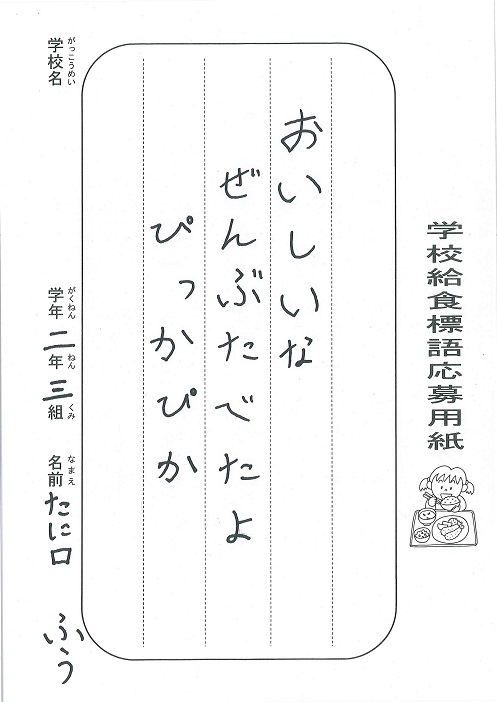 学校給食標語応募用紙
おいしいな
ぜんぶたでたよ
ぴっかぴか
学校名
がっこうめい
学年二年三組
がくねん ねん くみ
名前たに口 ふう
なまえ